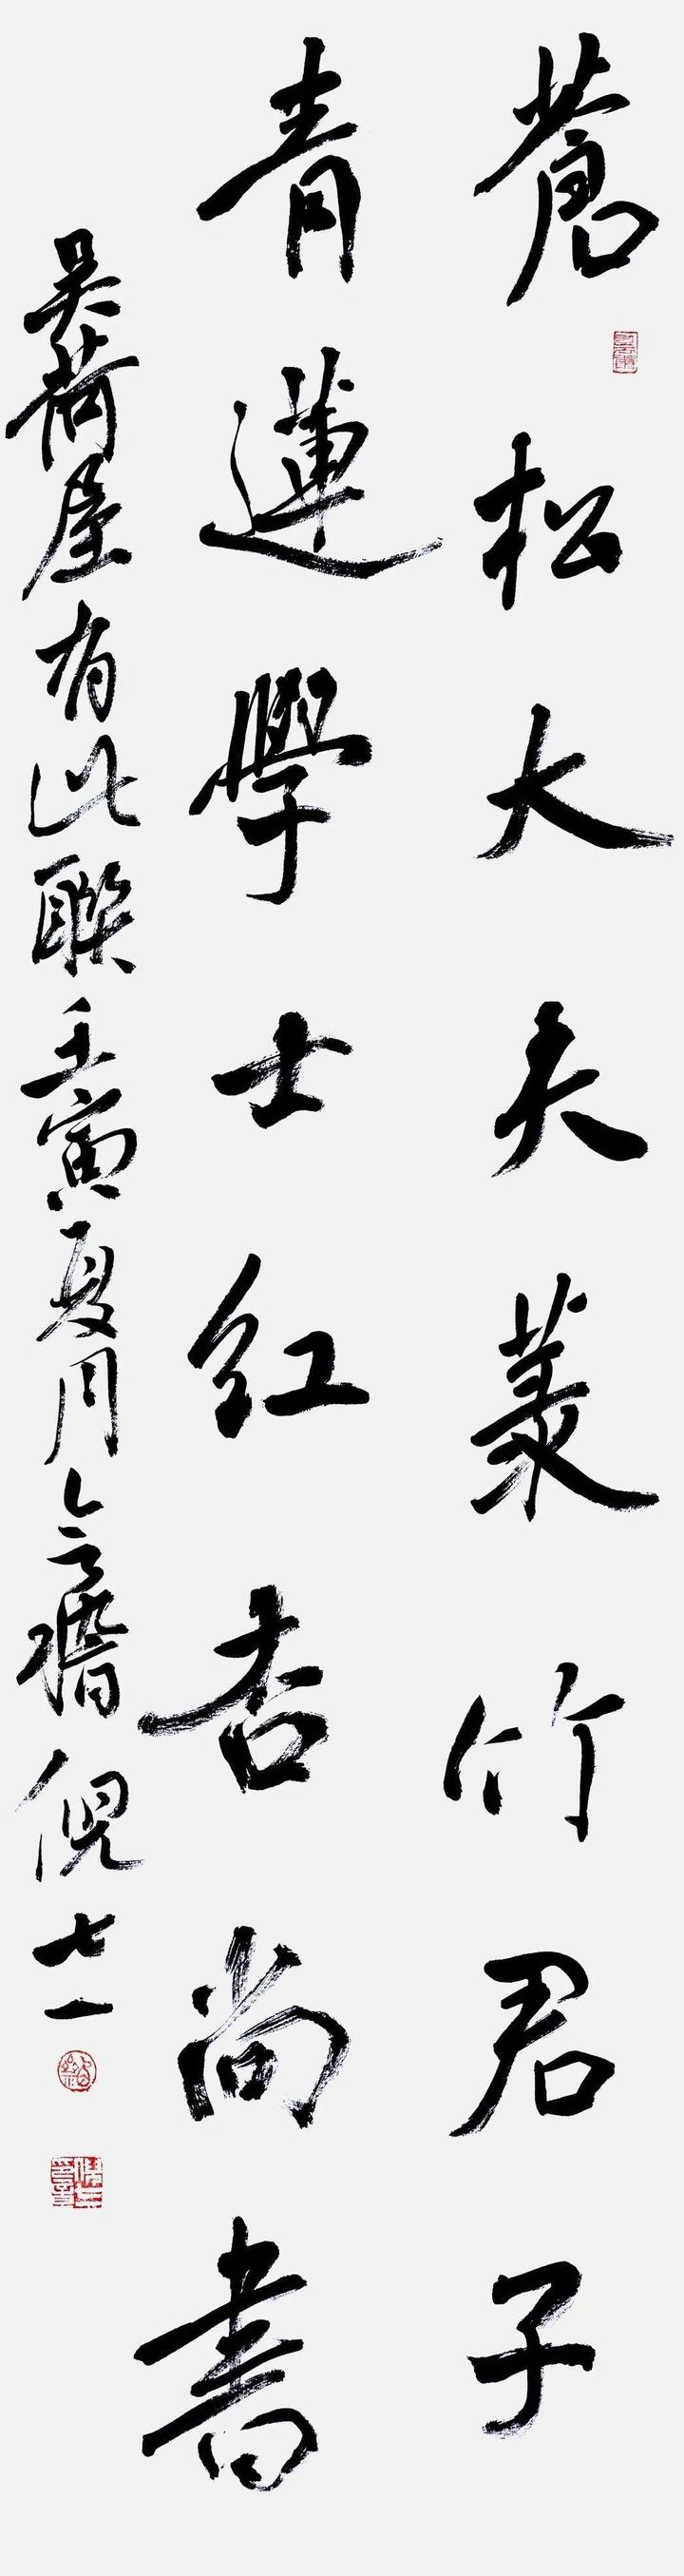 蒼松大夫菉竹君子
青蓮學士紅杏尚書
吳荷屋有此聯壬寅夏月会稽倪七一